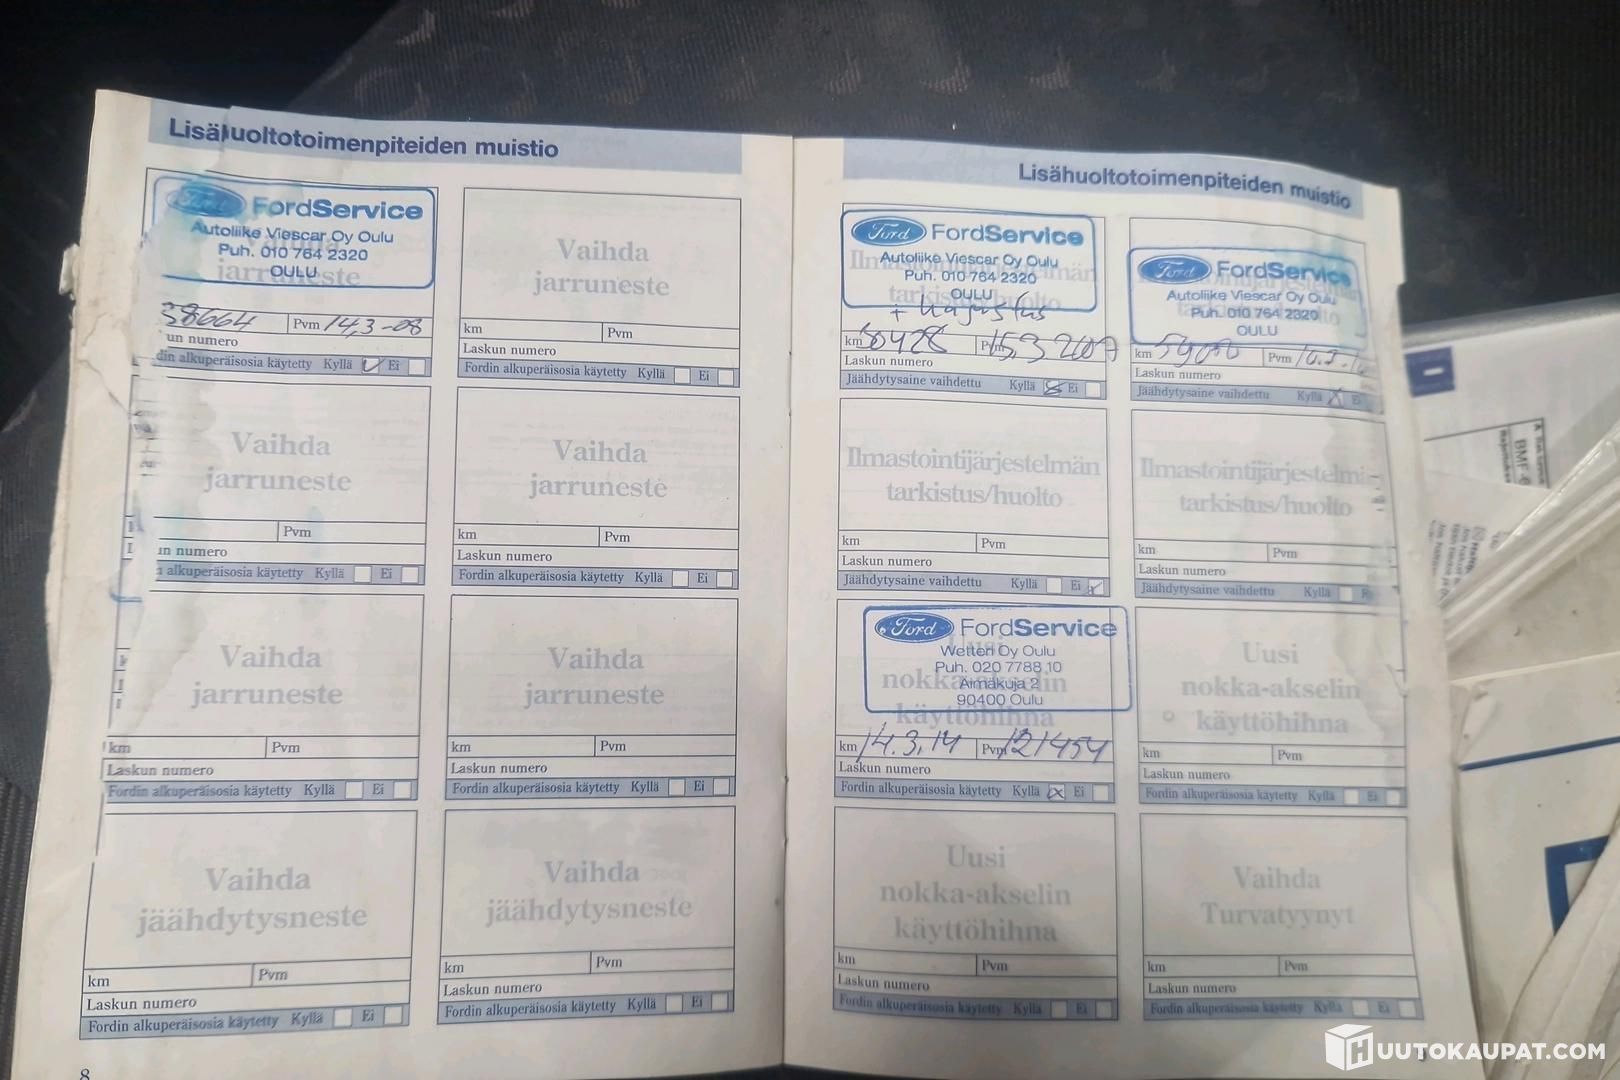 Lisähuoltotoimenpiteiden muistio
Ford FordService
Autoliike Viescar Oy Oulu
Puh. 010 764 2320
OULU
jarruneste
38664 Pvm 14,3-08
un numero
din alkuperäisosia käytetty Kyllä Ei
Vaihda
jarruneste
km Pvm
Laskun numero
Fordin alkuperäisosia käytetty Kyllä Ei
Vaihda
jarruneste
Pvm
un numero
alkuperäisosia käytetty Kyllä Ei
Vaihda
jarruneste
km Pvm
Laskun numero
Fordin alkuperäisosia käytetty Kyllä Ei
Vaihda
jarruneste
km Pvm
Laskun numero
Fordin alkuperäisosia käytetty Kyllä Ei
Vaihda
jarruneste
km Pvm
Laskun numero
Fordin alkuperäisosia käytetty Kyllä Ei
Vaihda
jäähdytysneste
km Pvm
Laskun numero
Fordin alkuperäisosia käytetty Kyllä Ei
Vaihda
jäähdytysneste
km Pvm
Laskun numero
Fordin alkuperäisosia käytetty Kyllä Ei
8
Lisähuoltotoimenpiteiden muistio
Ford FordService
Autoliike Viescar Oy Oulu
Puh. 010 764 2320
OULU
tarkistus/huolto
km Pvm 15.3 2007
Laskun numero
Jäähdytysaine vaihdettu Kyllä Ei
Ford FordService
Autoliike Viescar Oy Oulu
Puh. 010 764 2320
OULU
km Pvm
Laskun numero
Jäähdytysaine vaihdettu Kyllä Ei
Ilmastointijärjestelmän
tarkistus/huolto
km Pvm
Laskun numero
Jäähdytysaine vaihdettu Kyllä Ei
Ilmastointijärjestelmä
tarkistus/huolto
km Pvm
Laskun numero
Jäähdytysaine vaihdettu Kyllä
Ford FordService
Wetteri Oy Oulu
Puh. 020 7788 10
Äimäkuja 2
90400 Oulu
Uusi
nokka-akselin
käyttöhihna
km 14.3.14 Pvm 121454
Laskun numero
Fordin alkuperäisosia käytetty Kyllä Ei
Uusi
nokka-akselin
käyttöhihna
km Pvm
Laskun numero
Fordin alkuperäisosia käytetty Kyllä Ei
Uusi
nokka-akselin
käyttöhihna
km Pvm
Laskun numero
Fordin alkuperäisosia käytetty Kyllä Ei
Vaihda
Turvatyynyt
km Pvm
Laskun numero
Fordin alkuperäisosia käytetty Kyllä Ei
HUUTOKAUPAT.COM